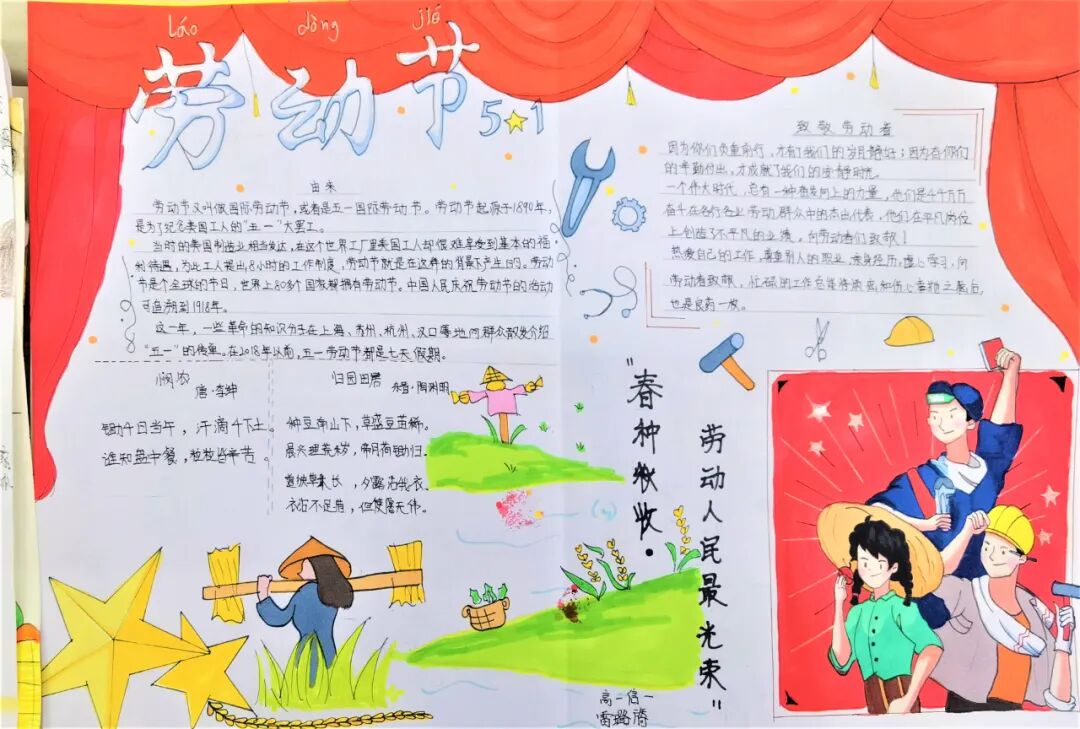 láo dòng jié
劳动节
5 1
由来
劳动节又叫做国际劳动节，或者是五一国际劳动节。劳动节起源于1890年，
是为了纪念美国工人的"五一"大罢工。
当时的美国制造业相当发达，在这个世界工厂里美国工人却很难享受到基本的福
利待遇，为此工人提出8小时的工作制度，劳动节就是在这样的背景下产生的。劳动
节是个全球的节日，世界上80多个国家都拥有劳动节。中国人民庆祝劳动节的活动
可追溯到1918年。
这一年，一些革命的知识分子在上海、苏州、杭州、汉口等地向群众散发介绍
"五一"的传单。在2018年以前，五一劳动节都是七天假期。
悯农
唐·李绅
锄禾日当午，汗滴禾下土。
谁知盘中餐，粒粒皆辛苦。
归园田居
东晋·陶渊明
种豆南山下，草盛豆苗稀。
晨兴理荒秽，带月荷锄归。
道狭草木长，夕露沾我衣。
衣沾不足惜，但使愿无违。
致敬劳动者
因为你们负重前行，才有我们的岁月静好；因为有你们
的辛勤付出，才成就了我们的安静时光。
一个伟大时代，总有一种奋发向上的力量，他们是千千万万
奋斗在各行各业劳动群众中的杰出代表，他们在平凡岗位
上创造了不平凡的业绩。向劳动者们致敬！
热爱自己的工作，尊重别人的职业，虚心学习，向
劳动者致敬，忙碌的工作总能
也是良药一枚。
"春种秋收·
劳动人民最光荣"
高一信一
雷璐腾